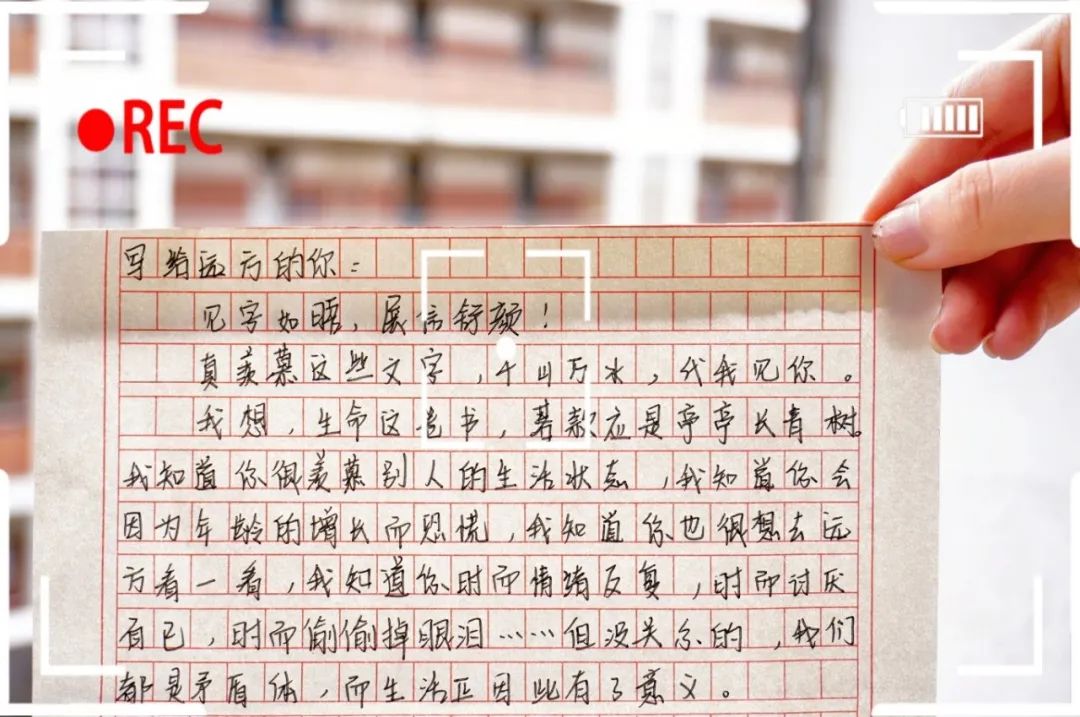 REC
写给远方的你：
见字如晤，展信舒颜！
真羡慕这些文字，千山万水，代我见你。
我想，生命这卷书，落款应是亭亭长青树。
我知道你很羡慕别人的生活状态，我知道你会
因为年龄的增长而恐慌，我知道你也很想去远
方看一看，我知道你时而情绪反复，时而讨厌
自己，时而偷偷掉眼泪……但没关系的，我们
都是矛盾体，而生活正因此有了意义。